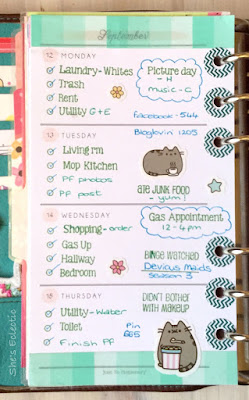 September
12 MONDAY
Laundry-Whites
Trash
Rent
Utility G+E
Picture day
- H
music - C
facebook - 544
13 TUESDAY
Bloglovin 1205
Living rm
Mop Kitchen
PF photos
PF post
ATE JUNK FOOD
- yum!
14 WEDNESDAY
Shopping-order
Gas Up
Hallway
Bedroom
Gas Appointment
12-4pm
BINGE WATCHED
Devious Maids
Season 3
THURSDAY
Utility-Water
Toilet
Finish PF
DIDN'T BOTHER
WITH MAKEUP
Pin
865
She's Eclectic